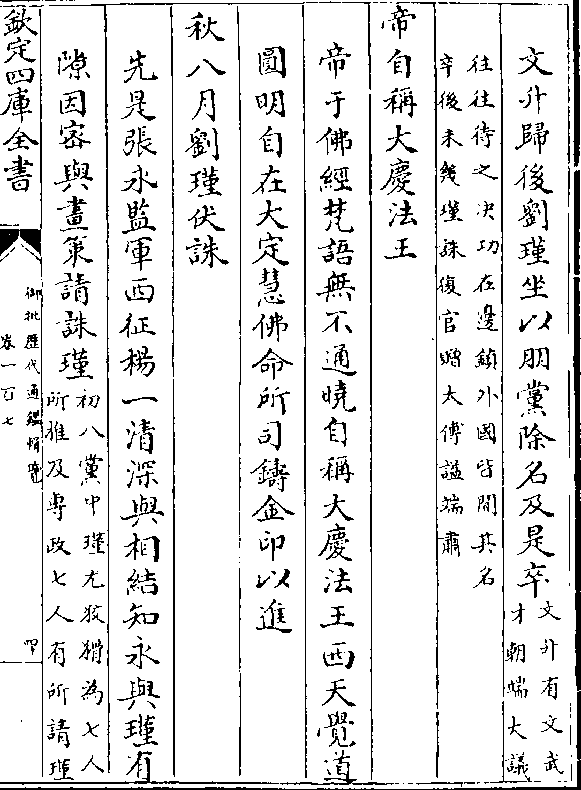 文升歸後劉瑾坐以朋黨除名及是卒
文升有文武
才朝端大議
往往待之決功在邊鎮外國皆聞其名
卒後未幾瑾誅復官贈太傅諡端肅
帝自稱大慶法王
帝于佛經梵語無不通曉自稱大慶法王西天覺道
圓明自在大定慧佛命所司鑄金印以進
秋八月劉瑾伏誅
先是張永監軍西征楊一清深與相結知永與瑾有
隙因密與畫策請誅瑾
初八黨中瑾尤狡獪為七人
所推及專政七人有所請瑾
欽定四庫全書
御批歷代通鑑輯覽
卷一百七